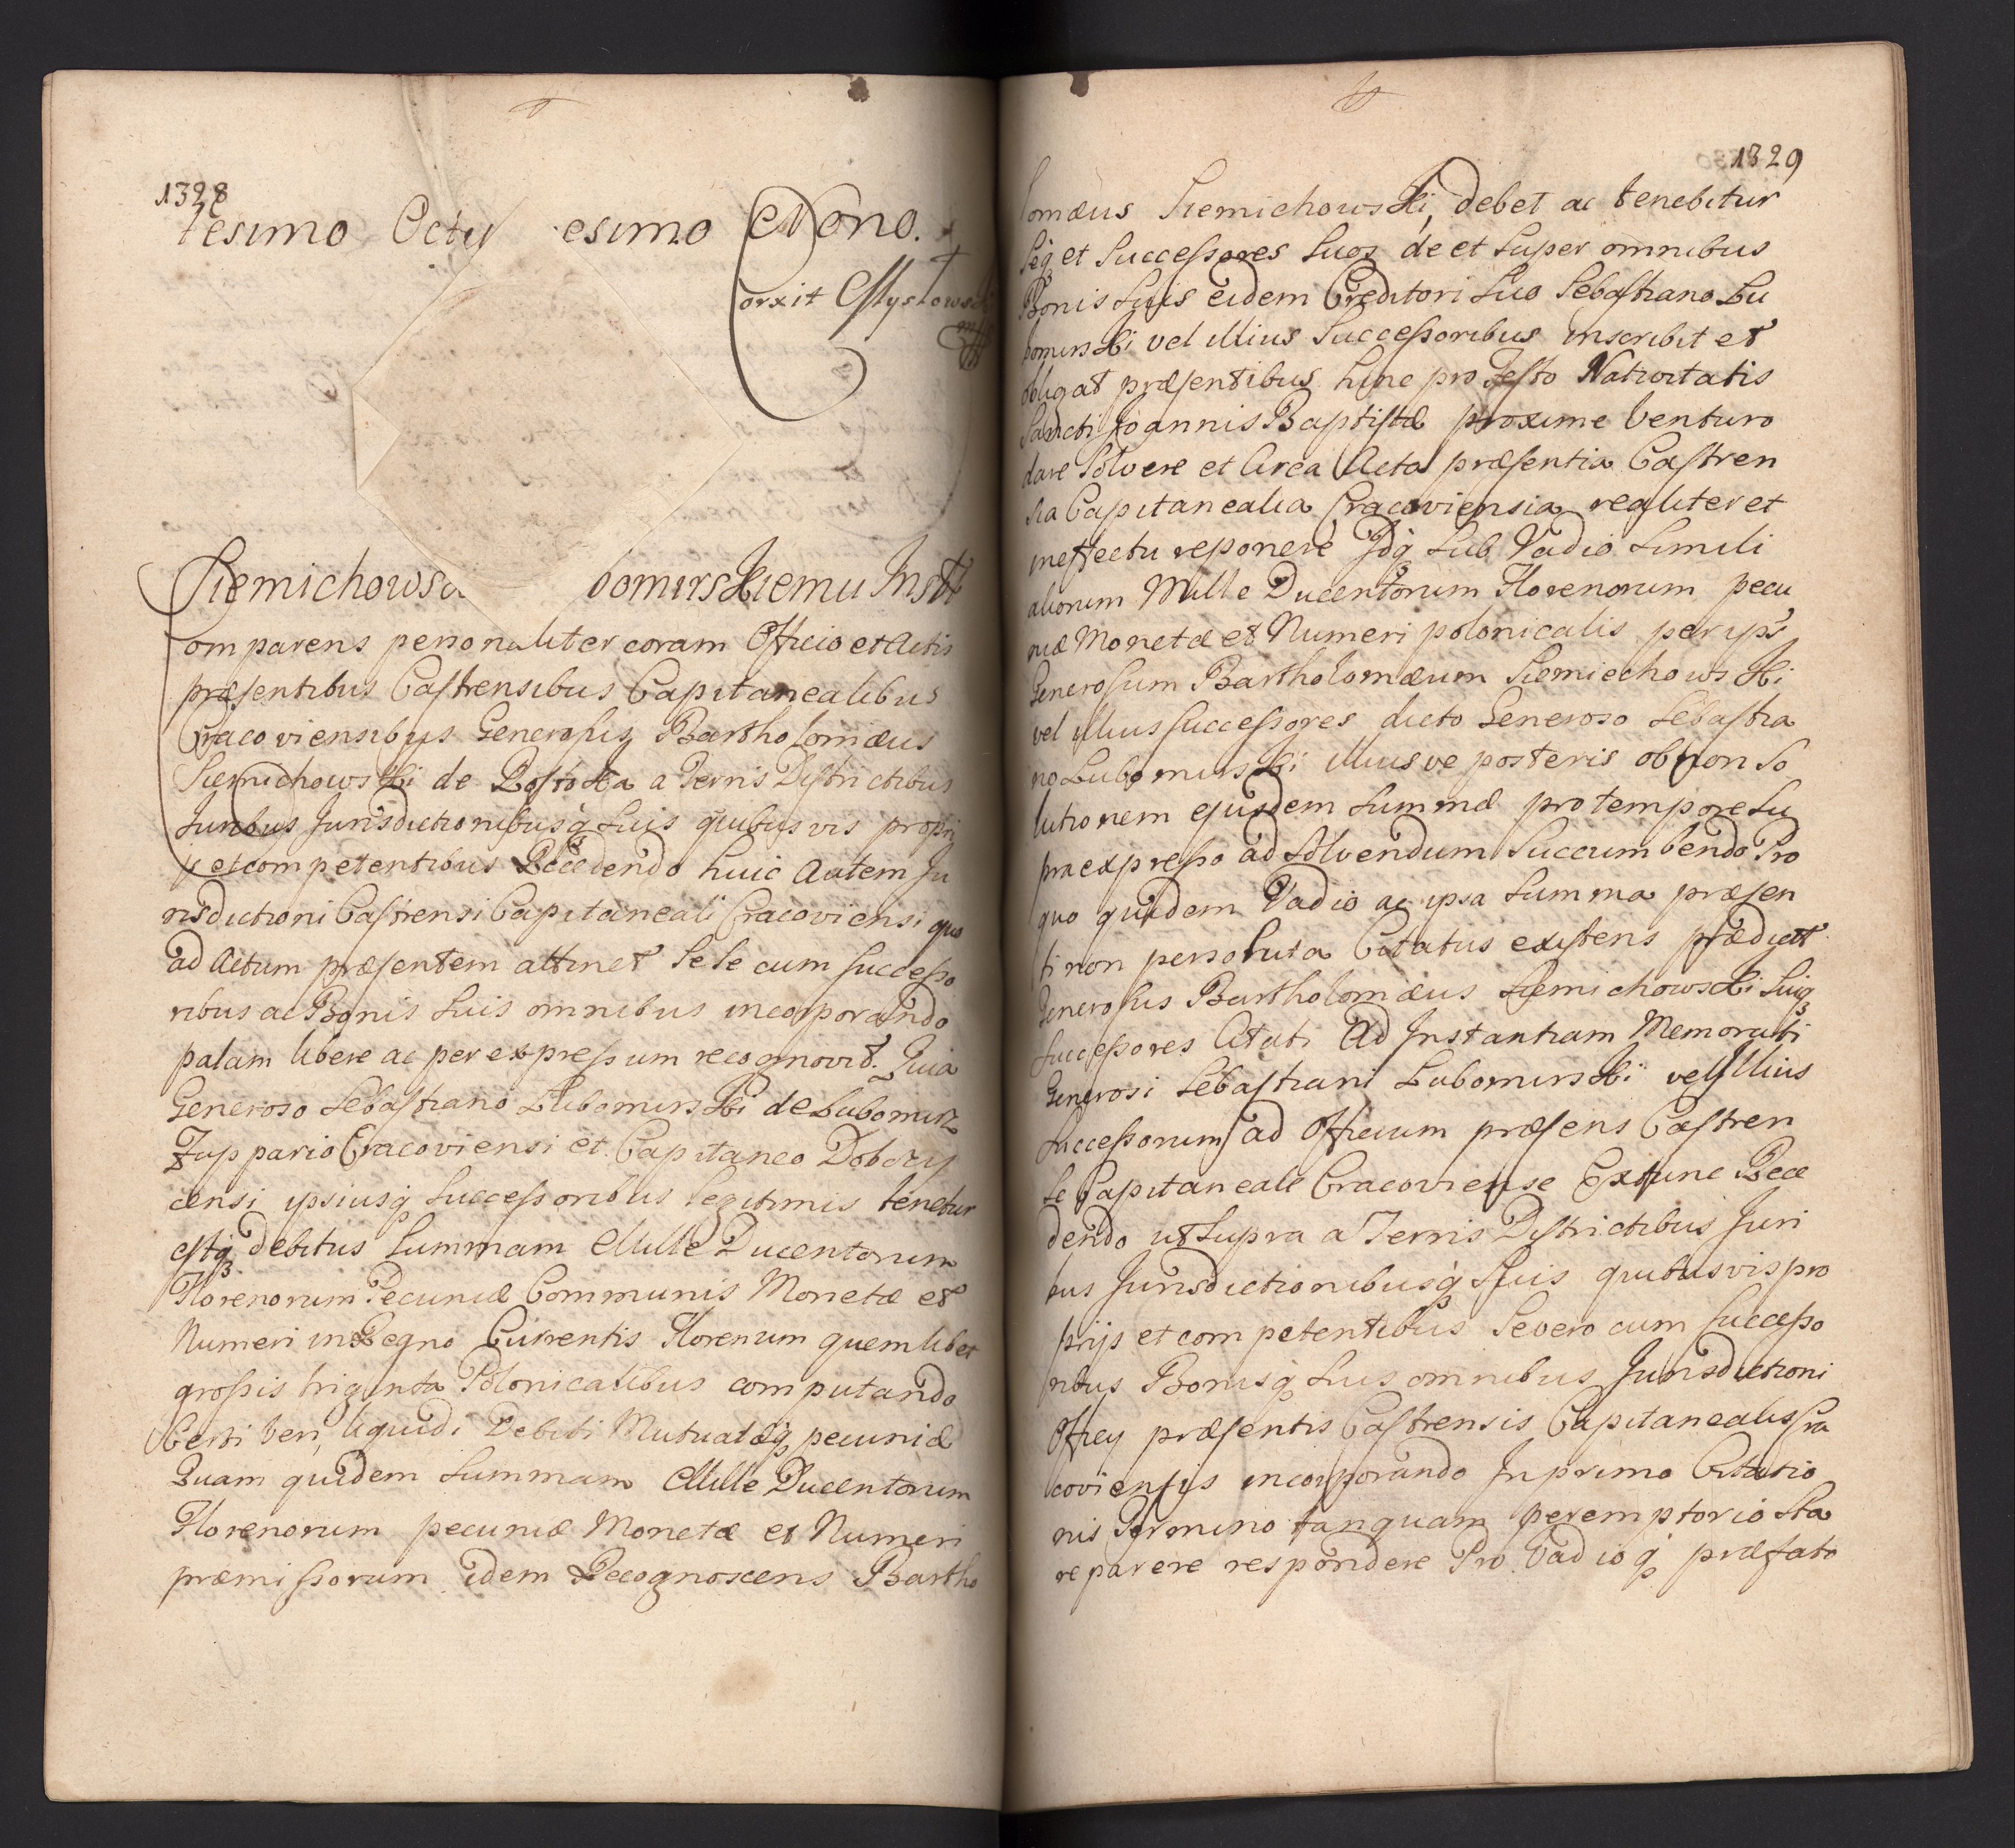 1328
tesimo Octu esimo Nono.
Corxit Mysłowski
mpp
Siemichowsc bomirskiemu Inst
Comparens personaliter coram Officio et Actis
præsentibus Castrensibus Capitanealibus
Cracoviensibus Generosus Bartholomæus
Siemichowski de Rostoka a Terris Districtibus
Iuribus Jurisdictionibusq suis quibusvis propri
js et competentibus Recedendo huic Autem Ju
risdictioni Castrensi Capitaneali Cracoviensi quo
ad Actum præsentem attinet Sese cum successo
ribus ac Bonis suis omnibus incorporando
palam libere ac per expressum recognovit. Quia
Generoso Sebastiano Lubomirski de Lubomirz
Zuppario Cracoviensi et Capitaneo Dobczy
censi ipsiusq Successoribus legitimis tenetur
estq debitus Summam Mille Ducentorum
Florenorum Pecuniæ Communis Monetæ et
Numeri in Regno Currentis Florenum quemlibet
grossis triginta Polonicalibus computando
Certi veri, liquidi Debiti Mutuatæq pecuniæ
Quam quidem Summam Mille Ducentorum
Florenorum pecuniæ Monetæ et Numeri
præmissorum idem Recognoscens Bartho
1329
lomæus Siemichowski, debet ac tenebitur
Seq et Successores Suos de et Super omnibus
Bonis Suis eidem Creditori Suo Sebastiano Lu
bomirski vel illius Successoribus inscribit et
obligat præsentibus hinc pro Festo Nativitatis
Sancti Joannis Baptistæ proxime venturo
dare Solvere et Circa Acta præsentia Castren
sia Capitanealia Cracoviensia realiter et
in effectu reponere Idq Sub Vadio Simili
aliorum Mille Ducentorum Florenorum pecu
niæ Monetæ et Numeri polonicalis per ips
Generosum Bartholomæum Siemiechowski
vel illius successores dicto Generoso Sebastia
no Lubomirski illiusve posteris ob non So
lutionem ejusdem Summæ pro tempore Su
praexpresso ad Solvendum Succumbendo Pro
quo quidem Vadio ac ipsa Summa præsen
ti non persoluta Citatus existens prædictt
Generosus Bartholomæus Siemichowski Suiq
successores Citati Ad Instantiam Memorati
Generosi Sebastiani Lubomirski vel Illius
Successorum ad Officium præsens Castren
se Capitaneale Cracoviense Extunc Rece
dendo ut Supra a Terris Districtibus Juri
bus Jurisdictionibusq Suis quibusvis pro
prijs et competentibus Se vero cum successo
ribus Bonisq Suis omnibus Jurisdictioni
Officy præsentis Castrensis Capitanealis Cra
coviensis incorporando In primo Citatio
nis Termino tanquam peremptorio Sta
re parere respondere Pro Vadioq præfato